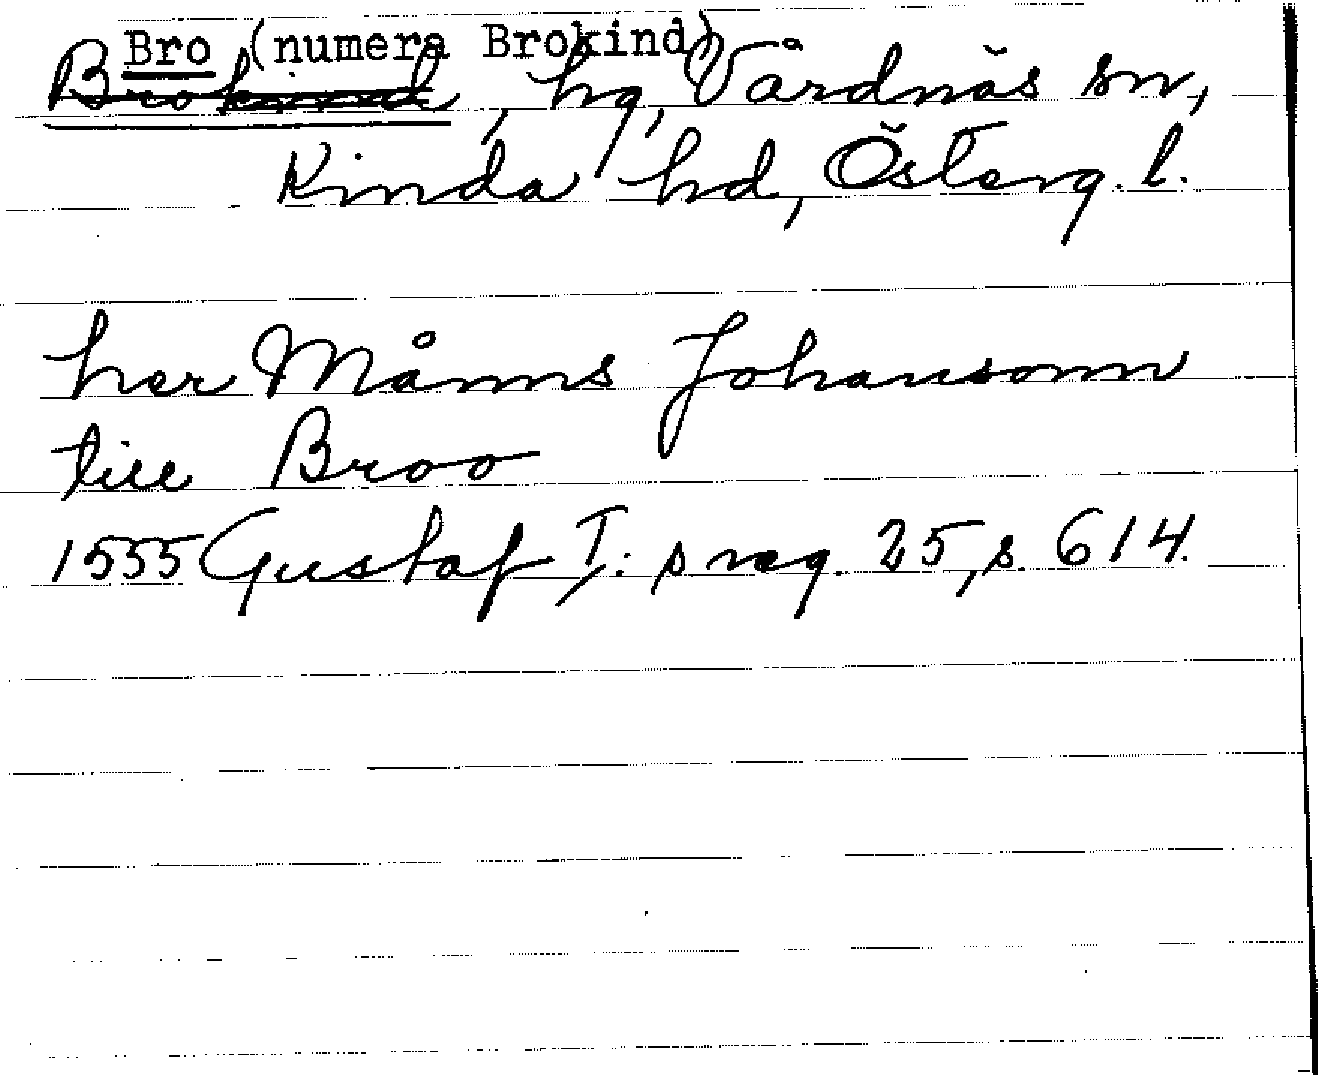 Bro (numera Brokind)
Brokind, hg, Vårdnäs sn,
Kinda hd, Österg. l.
her Måns Johansonn
till Broo
1555 Gustaf I:s reg. 25, s. 614.